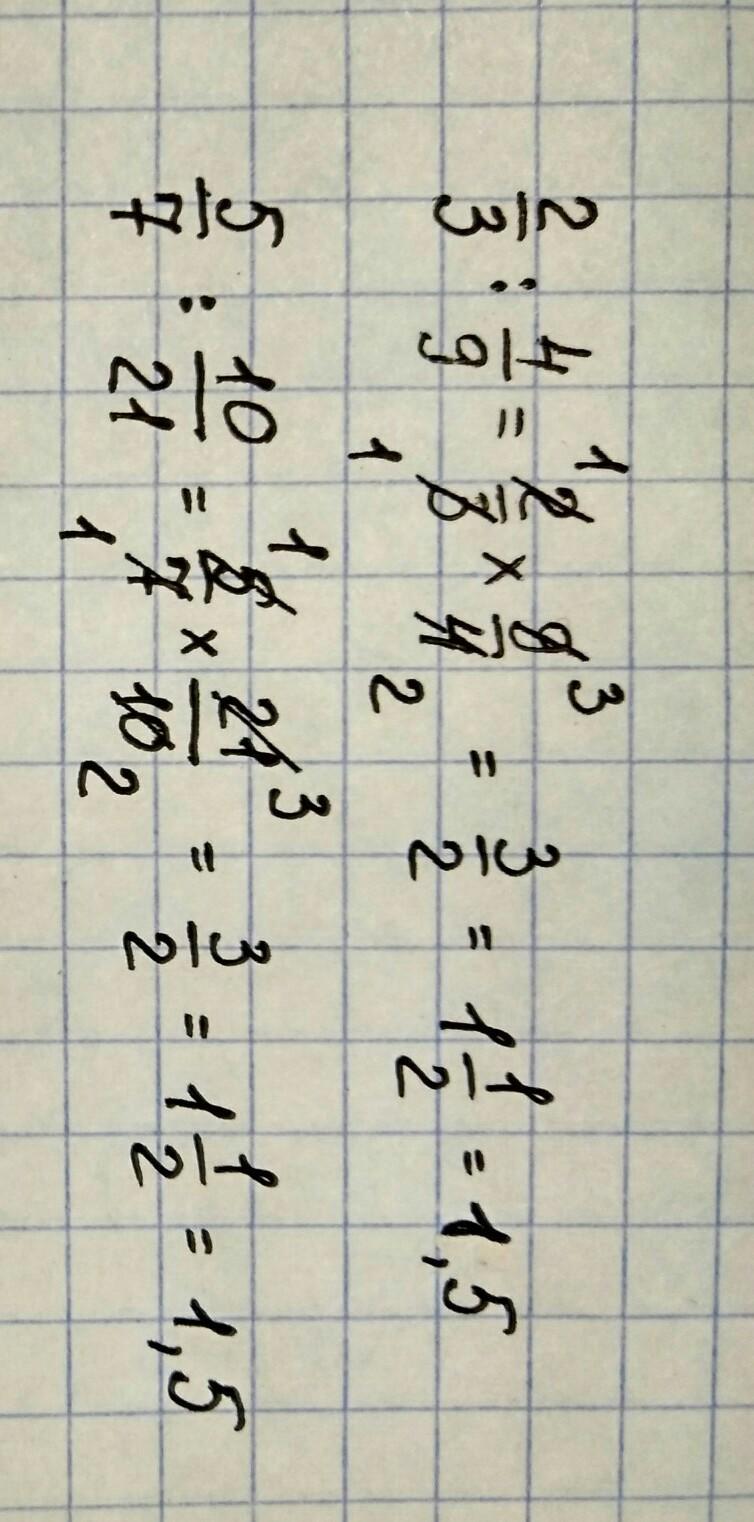 2/3 : 4/9 = 2/3 × 9/4 = 3/2 = 1 1/2 = 1,5
5/7 : 10/21 = 5/7 × 21/10 = 3/2 = 1 1/2 = 1,5